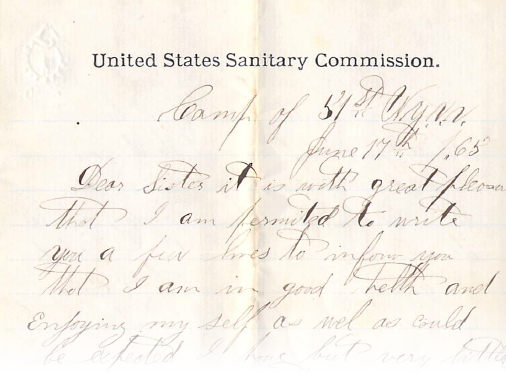 United States Sanitary Commission.
Camp of 51st N.Y.V.V.
June 17th /65
Dear Sister it is with great pleasu
that I am permited to write
you a few lines to inform you
that I am in good helth and
Enjoying my self as wel as could
be expected I have but very little